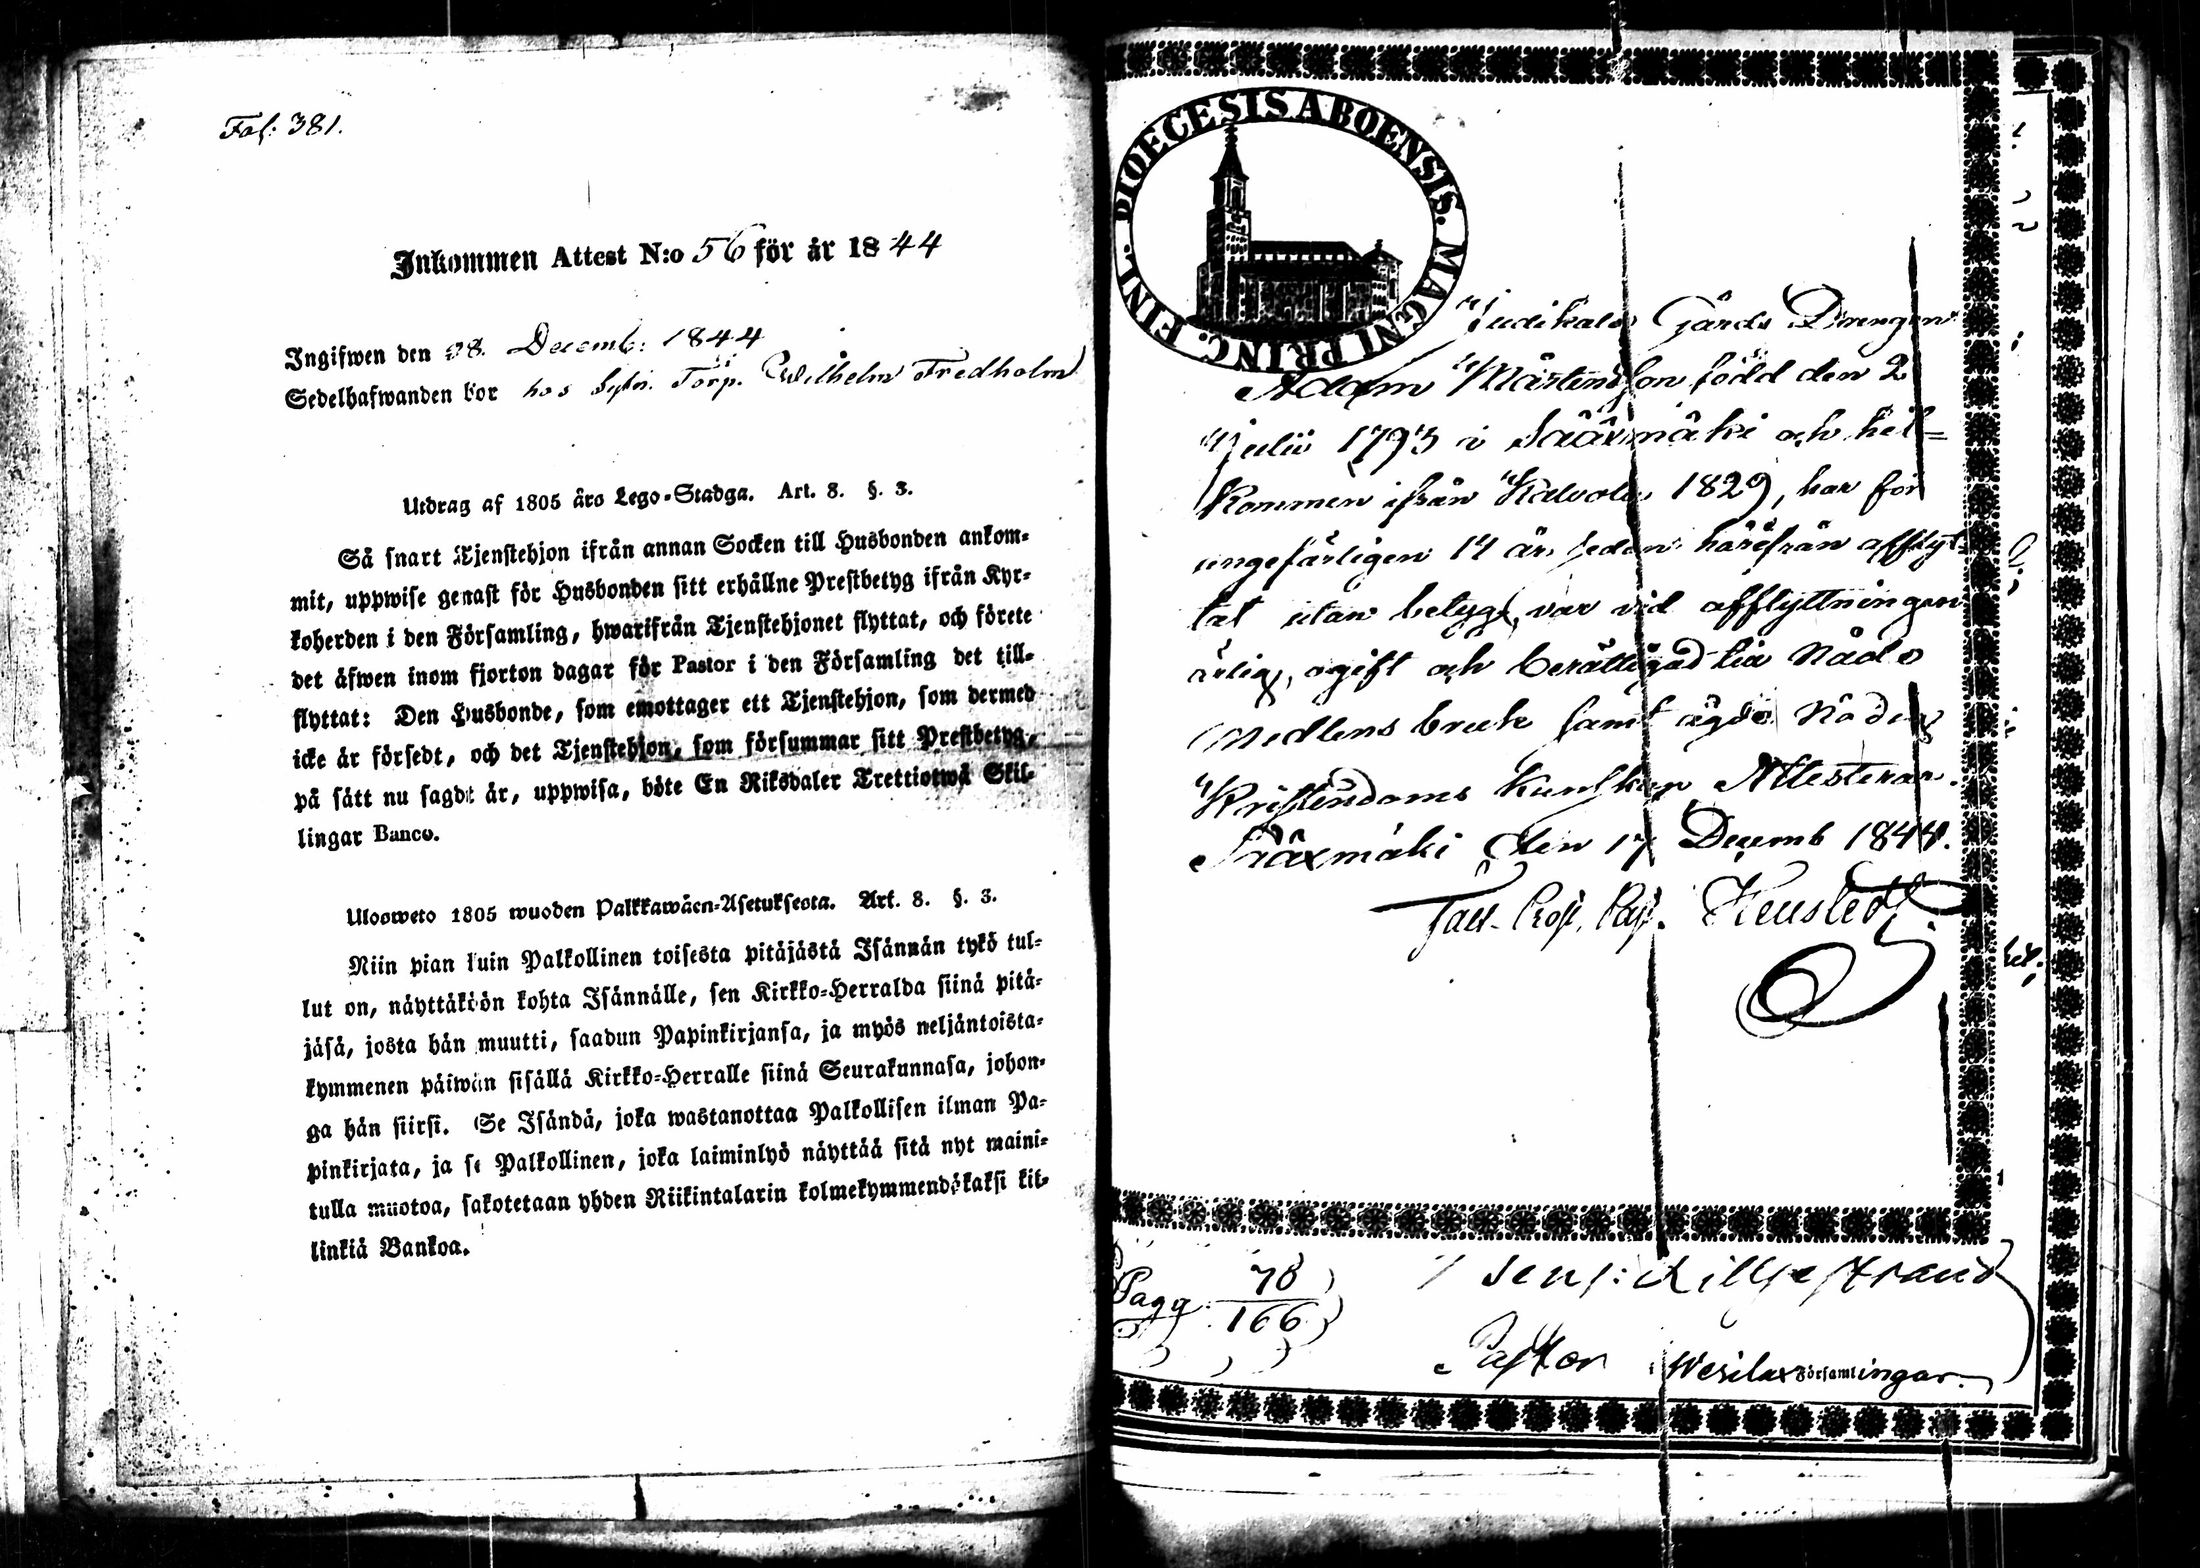 Fol: 381.
Inkommen Attest N:o 56 för år 1844
Ingifwen den 28. Decemb: 1844
Sedelhafwanden bor hos Torp. Wilhelm Fredholm
Utdrag af 1805 års Lego-Stadga. Art. 8. §. 3.
Så snart Tjenstehjon ifrån annan Socken till Husbonden ankom-
mit, uppwise genast för Husbonden sitt erhållne Prestbetyg ifrån Kyr-
koherden i den Församling, hwarifrån Tjenstehjonet flyttat, och förete
det äfwen inom fjorton dagar för Pastor i den Församling det till-
flyttat: Den Husbonde, som emottager ett Tjenstehjon, som dermed
icke är försedt, och det Tjenstehjon, som försummar sitt Prestbetyg,
på sätt nu sagdt är, uppwisa, böte En Riksdaler Trettiotwå Skil-
lingar Banco.
Ulosweto 1805 wuoden Palkkawäen-Asetuksesta. Art. 8. §. 3.
Niin pian kuin Palkollinen toisesta pitäjästä Isännän tykö tul-
lut on, näyttäköön kohta Isännälle, sen Kirkko-Herralda siinä pitä-
jäsä, josta hän muutti, saadun Papinkirjansa, ja myös neljäntoista-
kymmenen päiwän sisällä Kirkko-Herralle siinä Seurakunnasa, johon-
ga hän siirsi. Se Isändä, joka wastanottaa Palkollisen ilman Pa-
pinkirjata, ja se Palkollinen, joka laiminlyö näyttää sitä nyt maini-
tulla muotoa, sakotetaan yhden Riikintalarin kolmekymmendäkaksi kil-
linkiä Bankoa.
DIOECESIS ABOENSIS. MAGNI PRINC. FINL.
Judikala Gårds Drengen
Adam Mårtensson född den 2
Julii 1793 i Sääxmäki och hit=
kommen ifrån Kalvola 1829, har för
ungefärligen 14 år sedan härifrån afflyt-
tat utan betyg, var vid afflyttningen
ärlig, ogift och berättigad till Nåde
Medlens bruk samt ägde nödig
Kristendoms kunskap Attesterar.
Sääxmäki den 17 Decemb 1844.
Past. Heustedt
Pagg. 78/166
Liljestrand
Pastor i Wesilax Församlingar.